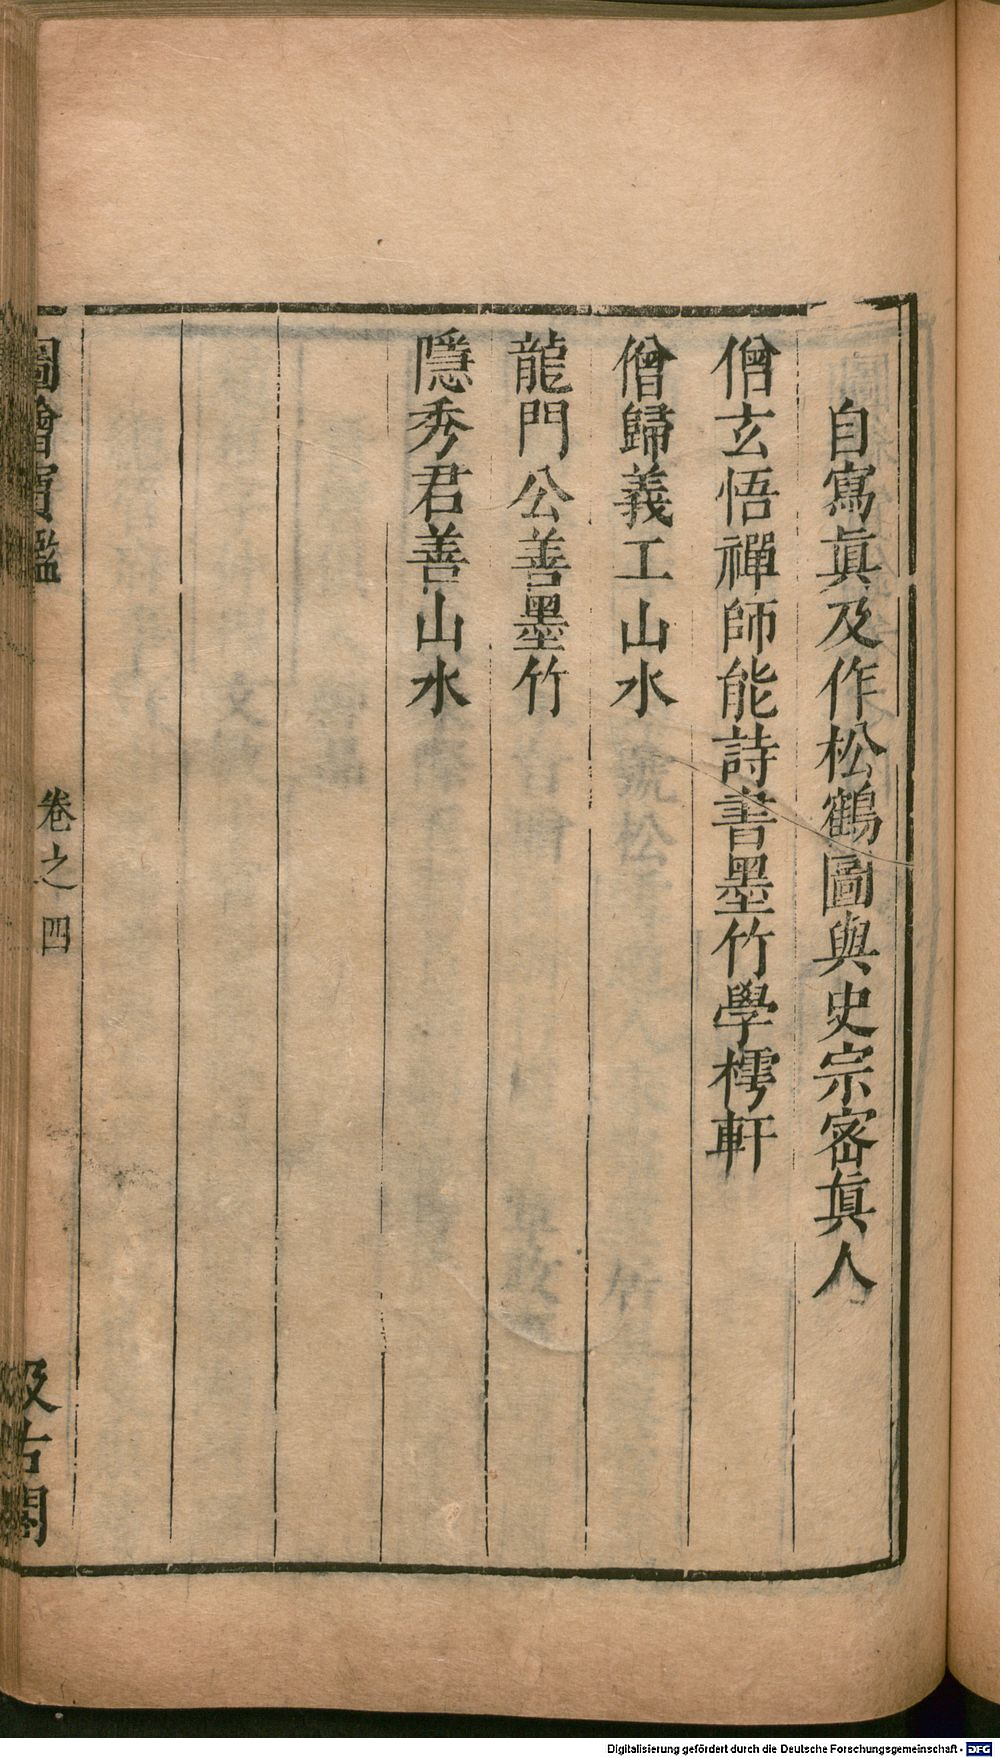 自寫眞及作松鶴圖與史宗密眞人
僧玄悟禪師能詩書墨竹學樗軒
僧歸義工山水
龍門公善墨竹
隱秀君善山水
圖繪寶鑑
卷之四
汲古閣
Digitalisierung gefördert durch die Deutsche Forschungsgemeinschaft - DFG